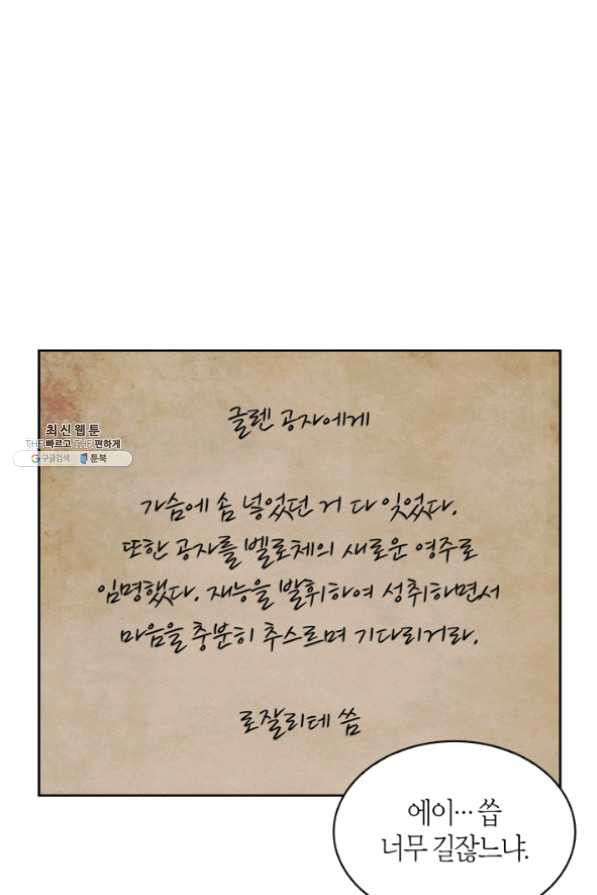 글렌 공자에게
최신웹툰
THE빠르고 THE편하게
구글검색 툰북
가슴에 솜 넣었던 거 다 잊었다.
또한 공자를 벨로체의 새로운 영주로
임명했다. 재능을 발휘하여 성취하면서
마음을 충분히 추스르며 기다리거라.
로잘리테 씀
에이… 씁
너무 길잖느냐.